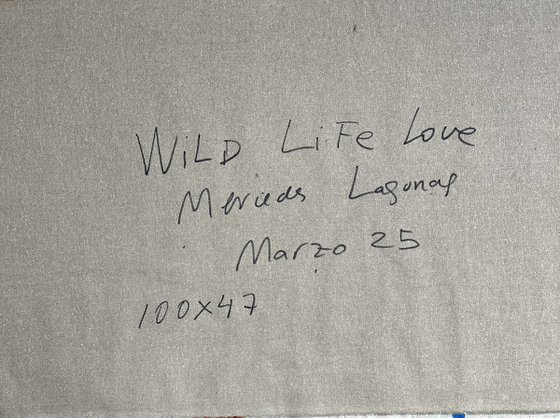 WiLD LiFe Love
Mercedes Lagunas
Marzo 25
100x47